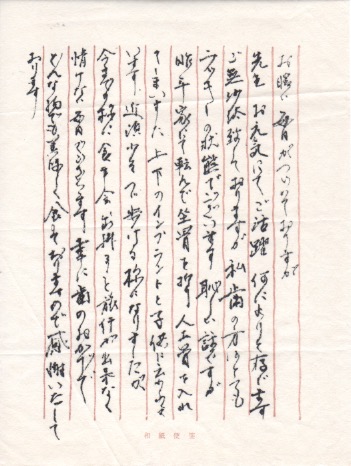 お暖い毎日がつづいておりますが
先生 お元気にてご活躍 何よりと存じます
ご無沙汰致しておりますが 私 歯の方はとても
の状態でございます 恥しい話ですが
昨年 家にて転んで坐骨を 人工骨を入れ
てしまいました 上下のインプラントと子供に
います 近頃 少し 歩ける様になりましたが
今までの様に食事会 お掛けと旅行が出来なく
情けない毎日でございます 幸に歯のおかげで
どんな物でも美味しく食しております ので感謝いたして
おります
和紙便箋